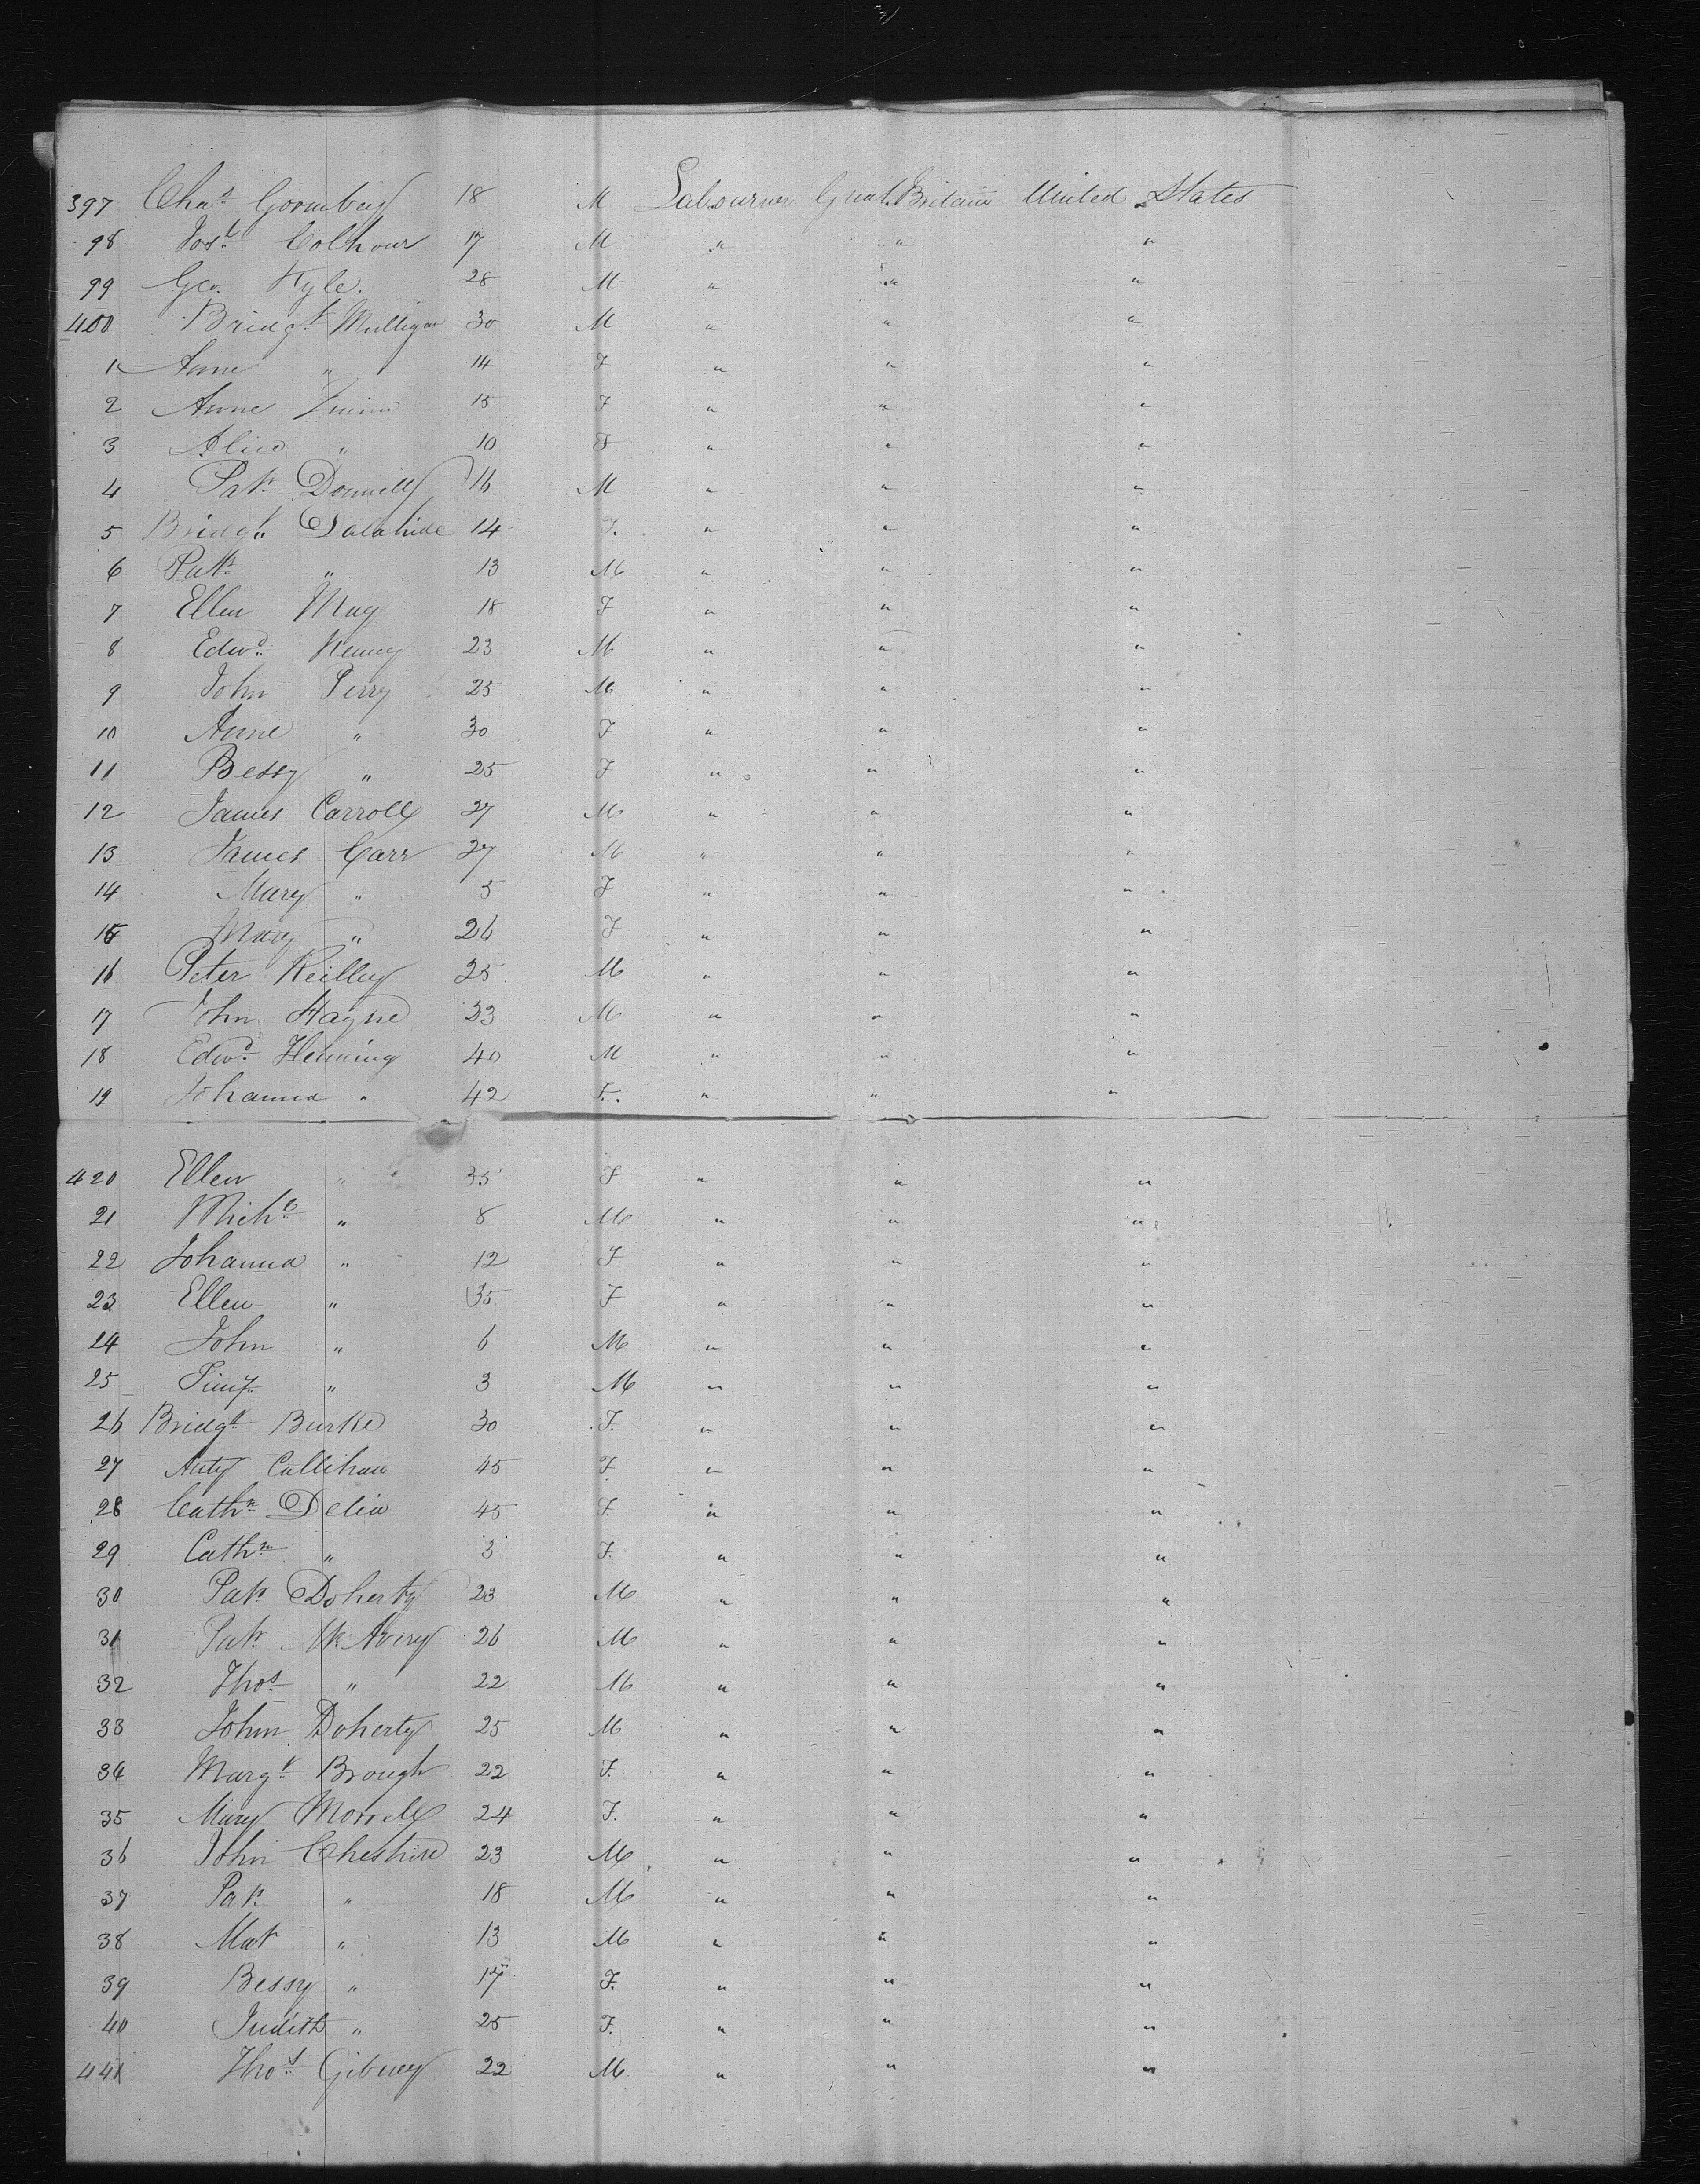 397 Chas Gormbey 18 M Labourer Great Britain United States
98 Josh Colhour 17 M " " "
99 Geo. Kyle. 28 M " " "
400 Bridgt Mulligan 30 M " " "
1 Anne " 14 F " " "
2 Anne Quinn 15 F " " "
3 Alice " 10 F " " "
4 Patk Donnelly 16 M " " "
5 Bridgt Dalahide 14 F. " " "
6 Patk " 13 M " " "
7 Ellen May 18 F " " "
8 Edwd Kenny 23 M " " "
9 John Perry 25 M " " "
10 Anne " 30 F " " "
11 Bessy " 25 F " " "
12 James Carroll 27 M " " "
13 James Carr 27 M " " "
14 Mary " 5 F " " "
15 Mary " 26 F " " "
16 Peter Reilley 25 M " " "
17 John Hayne 23 M " " "
18 Edwd Henning 40 M " " "
19 Johanna " 42 F. " " "
420 Ellen " 35 F " " "
21 Michl " 8 M " " "
22 Johanna " 12 F " " "
23 Ellen " 35 F " " "
24 John " 6 M " " "
25 Timy " 3 M " " "
26 Bridgt Burke 30 F. " " "
27 Anty Callihan 45 F. " " "
28 Cathn Delia 45 F. " " "
29 Cathn " 3 F. " " "
30 Patk Doherty 23 M " " "
31 Patk McAvery 26 M " " "
32 Thos " 22 M " " "
33 John Doherty 25 M " " "
34 Margt Brough 22 F. " " "
35 Mary Morrell 24 F. " " "
36 John Cheshire 23 M " " "
37 Patk " 18 M " " "
38 Mat " 13 M " " "
39 Bessy " 17 F. " " "
40 Judith " 25 F. " " "
441 Thos Gibney 22 M " " "